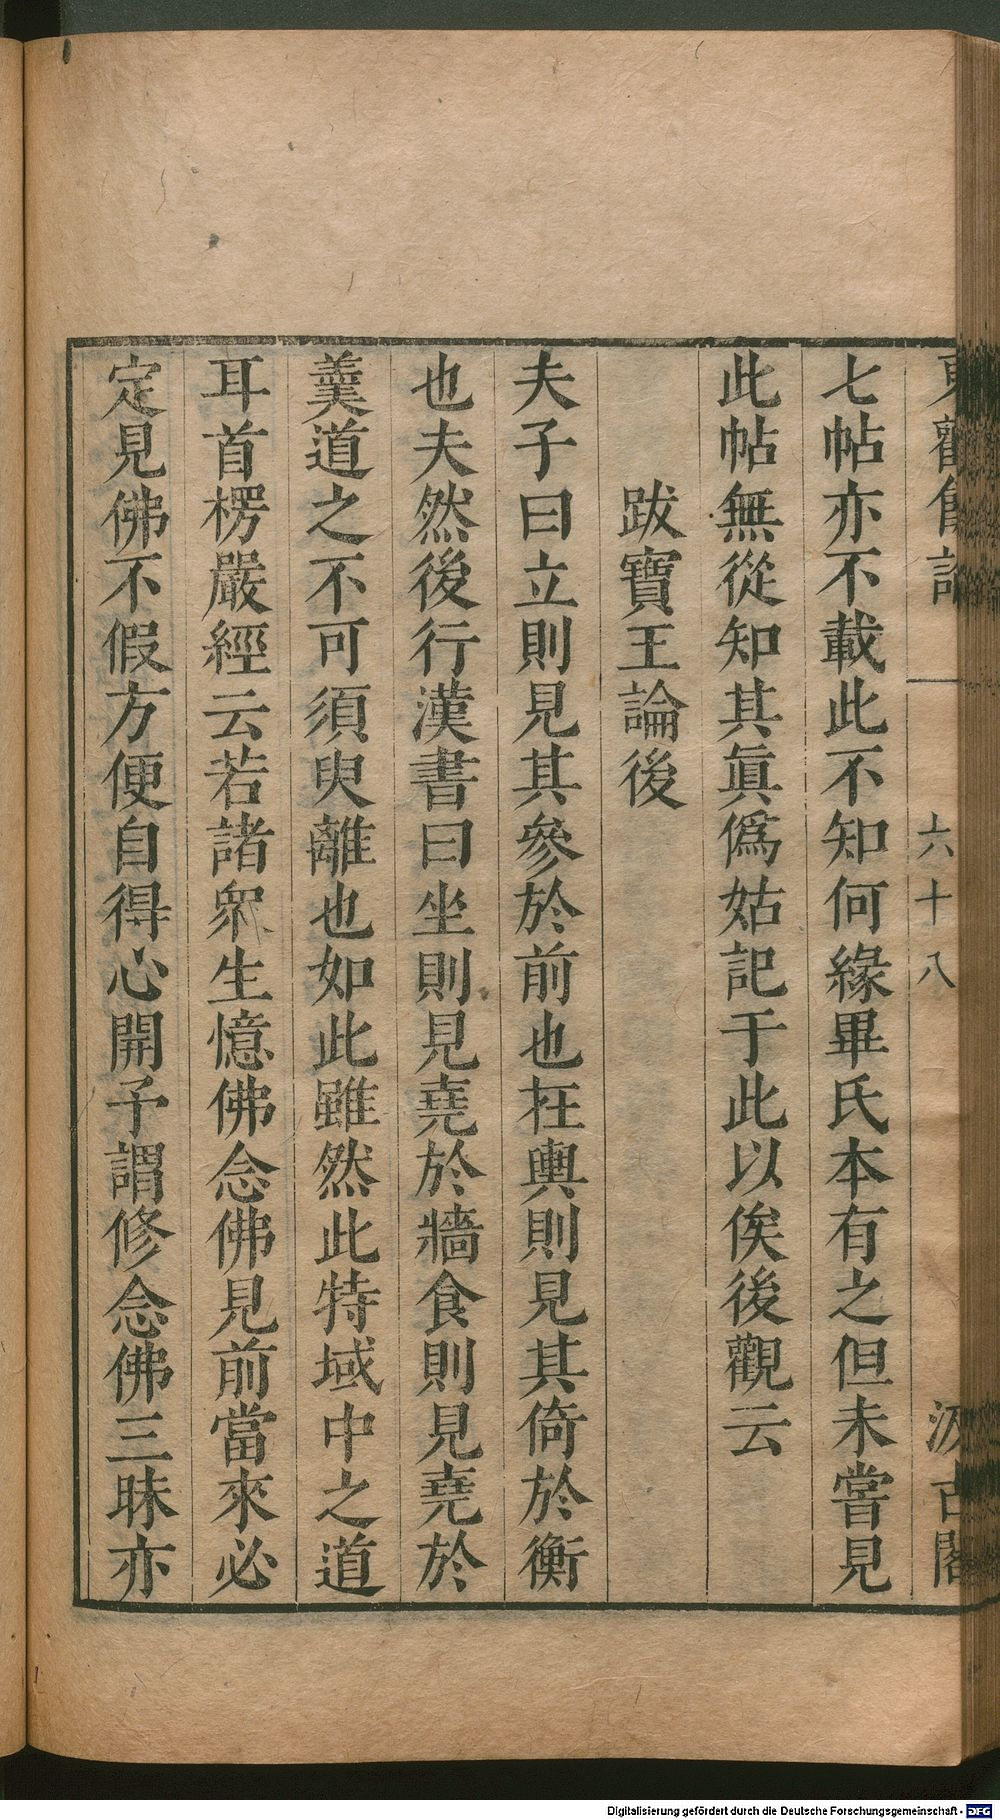 東觀餘論
六十八
汲古閣
七帖亦不載此不知何緣畢氏本有之但未嘗見
此帖無從知其眞僞姑記于此以俟後觀云
跋寶王論後
夫子曰立則見其參於前也在輿則見其倚於衡
也夫然後行漢書曰坐則見堯於牆食則見堯於
羹道之不可須臾離也如此雖然此特域中之道
耳首楞嚴經云若諸衆生憶佛念佛見前當來必
定見佛不假方便自得心開予謂修念佛三昧亦
Digitalisierung gefördert durch die Deutsche Forschungsgemeinschaft - DFG